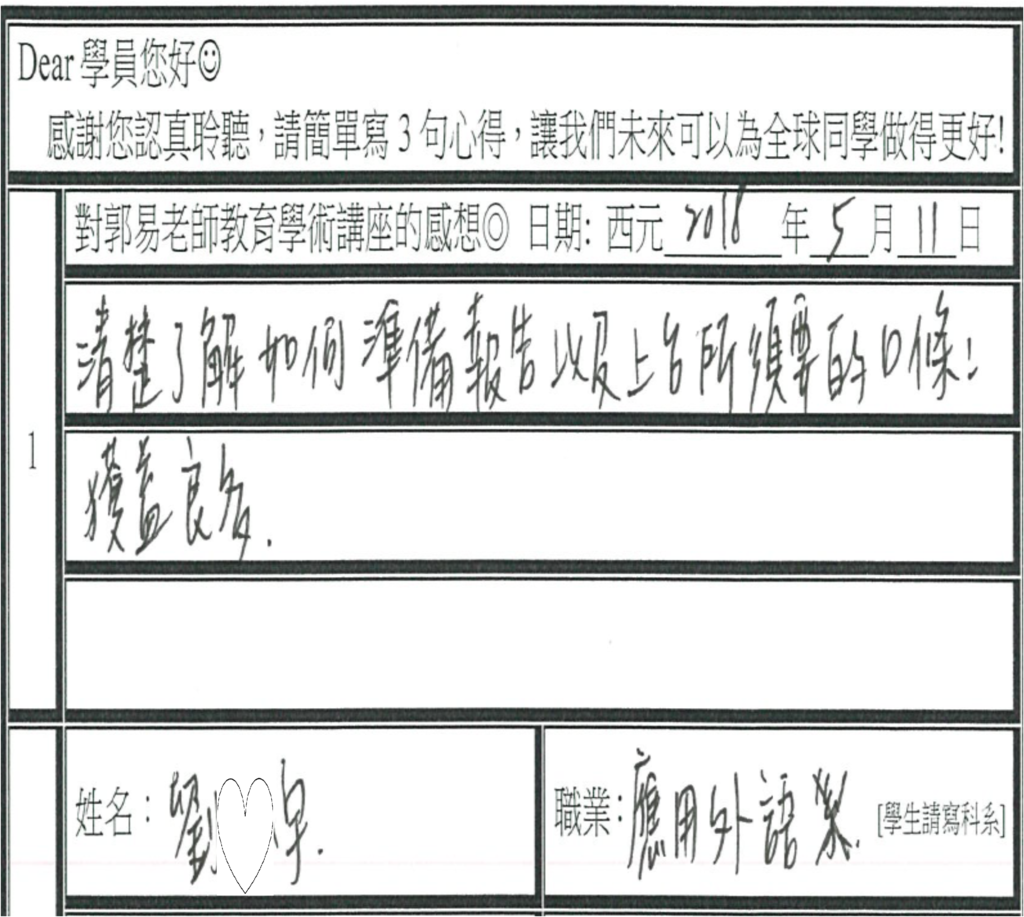 Dear 學員您好☺
感謝您認真聆聽，請簡單寫 3 句心得，讓我們未來可以為全球同學做得更好!
對郭易老師教育學術講座的感想◎ 日期: 西元 2018 年 5 月 11 日
清楚了解如何準備報告以及上台所須要的口條!
1
獲益良多.
姓名： 劉
職業: 應用外語系. [學生請寫科系]